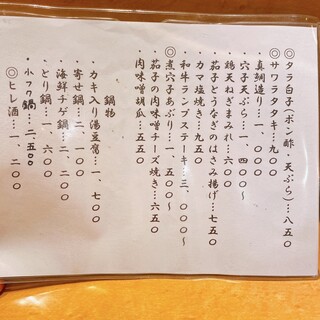 ◎タラ白子(ポン酢・天ぷら)…八五〇
◎サワラタタキ…九〇〇
真鯛造り…一、〇〇〇
穴子天ぷら…一、四〇〇〜
鶏天ねぎまみれ…六〇〇
茄子とうなぎのはさみ揚げ…七五〇
カマ塩焼き…九五〇
和牛ランプステーキ…三、〇〇〇〜
◎煮穴子あぶり…一、五〇〇〜
茄子の肉味噌チーズ焼き…六五〇
肉味噌胡瓜…五五〇
鍋物
カキ入り湯豆腐…一、七〇〇
寄せ鍋…二、一〇〇
海鮮チゲ鍋…二、二〇〇
とり鍋…一、六〇〇
小フク鍋…二、五〇〇
◎ヒレ酒…一、二〇〇